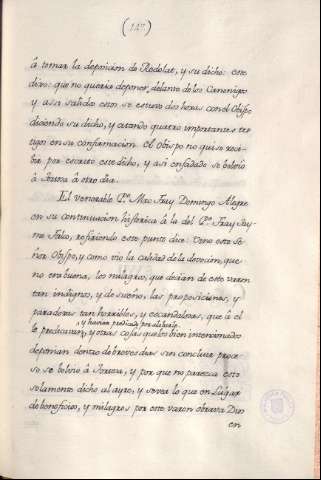 (147)
â tomar la deposicion de Rodolat, y su dicho: este
dixo: que no queria deponer, delante de los Canonigos
y assi salidos estos se estuvo dos horas con el Obispo
diciendo su dicho, y citando quatro importantes tes-
tigos en su confirmacion. el Obispo no quiso reci-
bir por escrito este dicho, y asi enfadado se bolvio
â Tortosa â otro dia.
El venerable P.e Mro Fray Domingo Alegre
en su continuacion historica â la del P.e Fray Jay-
me Falco, refiriendo este punto dice: Vino este Se-
ñor Obispo, y como vio la calidad de la devocion, que
no era buena, los milagros, que decian de este varon
tan indignos, y de sueño, las proposiciones, y
paradoxas tan horribles, y escandalosas, que â el
y havian predicado por el aixi
le predicavan, y otras cosas que los bien intencionados
deponian dentro de breves dias sin concluir proce-
so, se bolvio â Tortosa, y por que no parezca esto
solamente dicho al ayre, y se vea lo que en Lugar
de beneficios, y milagros por este varon obrava Dios
en